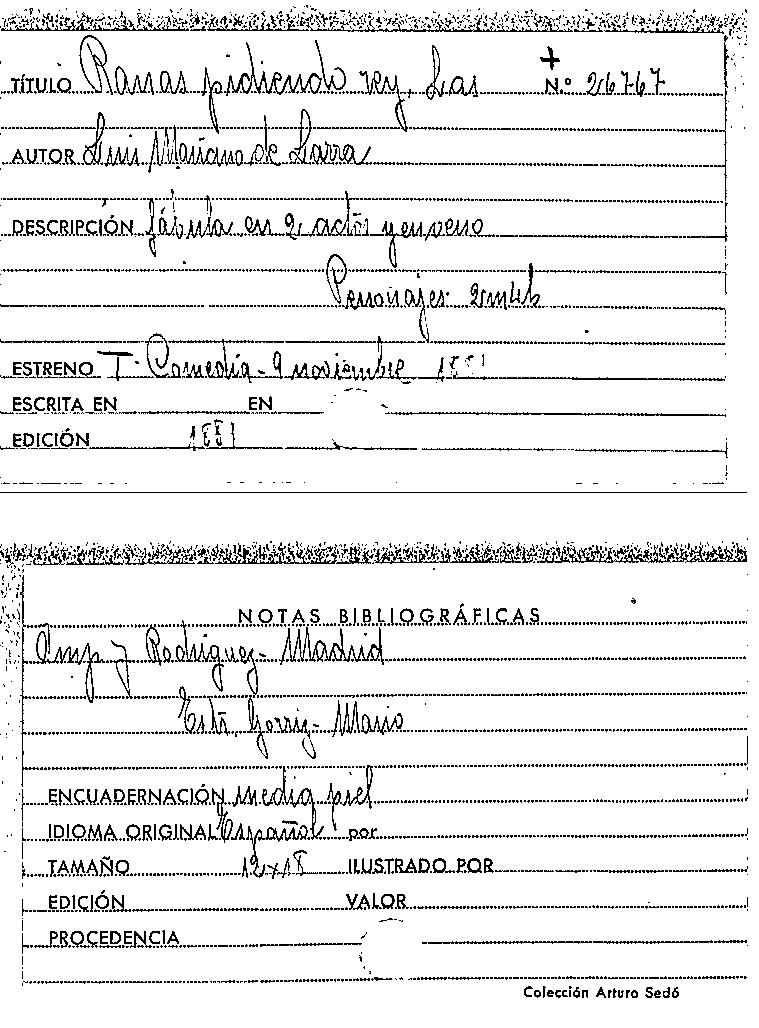 TÍTULO Ranas pidiendo rey, Las N.º 26767
AUTOR Luis Mariano de Larra
DESCRIPCIÓN fábula en 2 actos y en verso
Personajes 2m4h
ESTRENO T. Comedia - 9 noviembre 1881
ESCRITA EN EN
EDICIÓN 1881
NOTAS BIBLIOGRÁFICAS
Imp J Rodriguez - Madrid
Gorriz - Mario
ENCUADERNACIÓN media piel
IDIOMA ORIGINAL Español por
TAMAÑO 12x18 ILUSTRADO POR
EDICIÓN VALOR
PROCEDENCIA
Colección Arturo Sedó